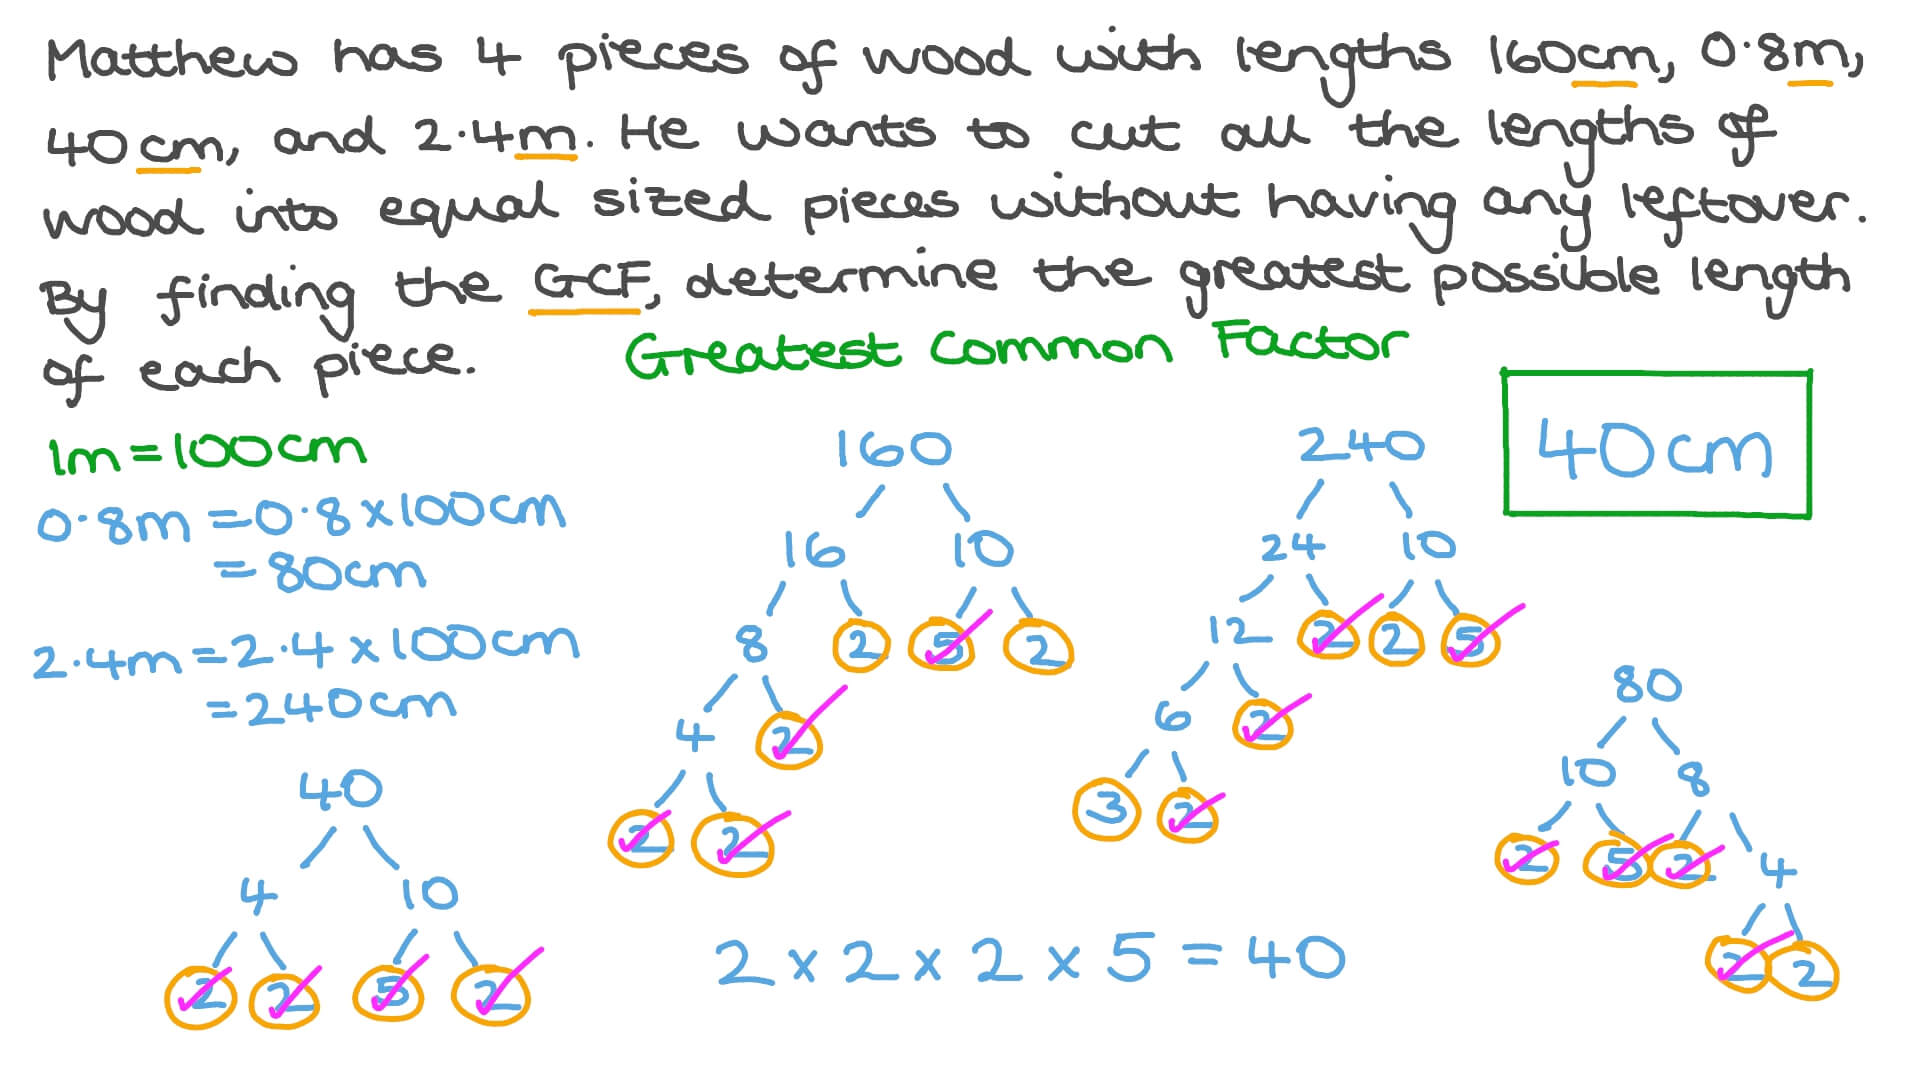 Matthew has 4 pieces of wood with lengths 160cm, 0·8m,
40cm, and 2·4m. He wants to cut all the lengths of
wood into equal sized pieces without having any leftover.
By finding the GCF, determine the greatest possible length
of each piece.
Greatest Common Factor
1m=100cm
0·8m =0·8×100cm
=80cm
2·4m=2·4×100cm
=240cm
40
4 10
2 2 5 2
160
16 10
8 2 5 2
4 2
2 2
240
24 10
12 2 2 5
6 2
3 2
40cm
80
10 8
2 5 2 4
2 2
2 × 2 × 2 × 5 = 40